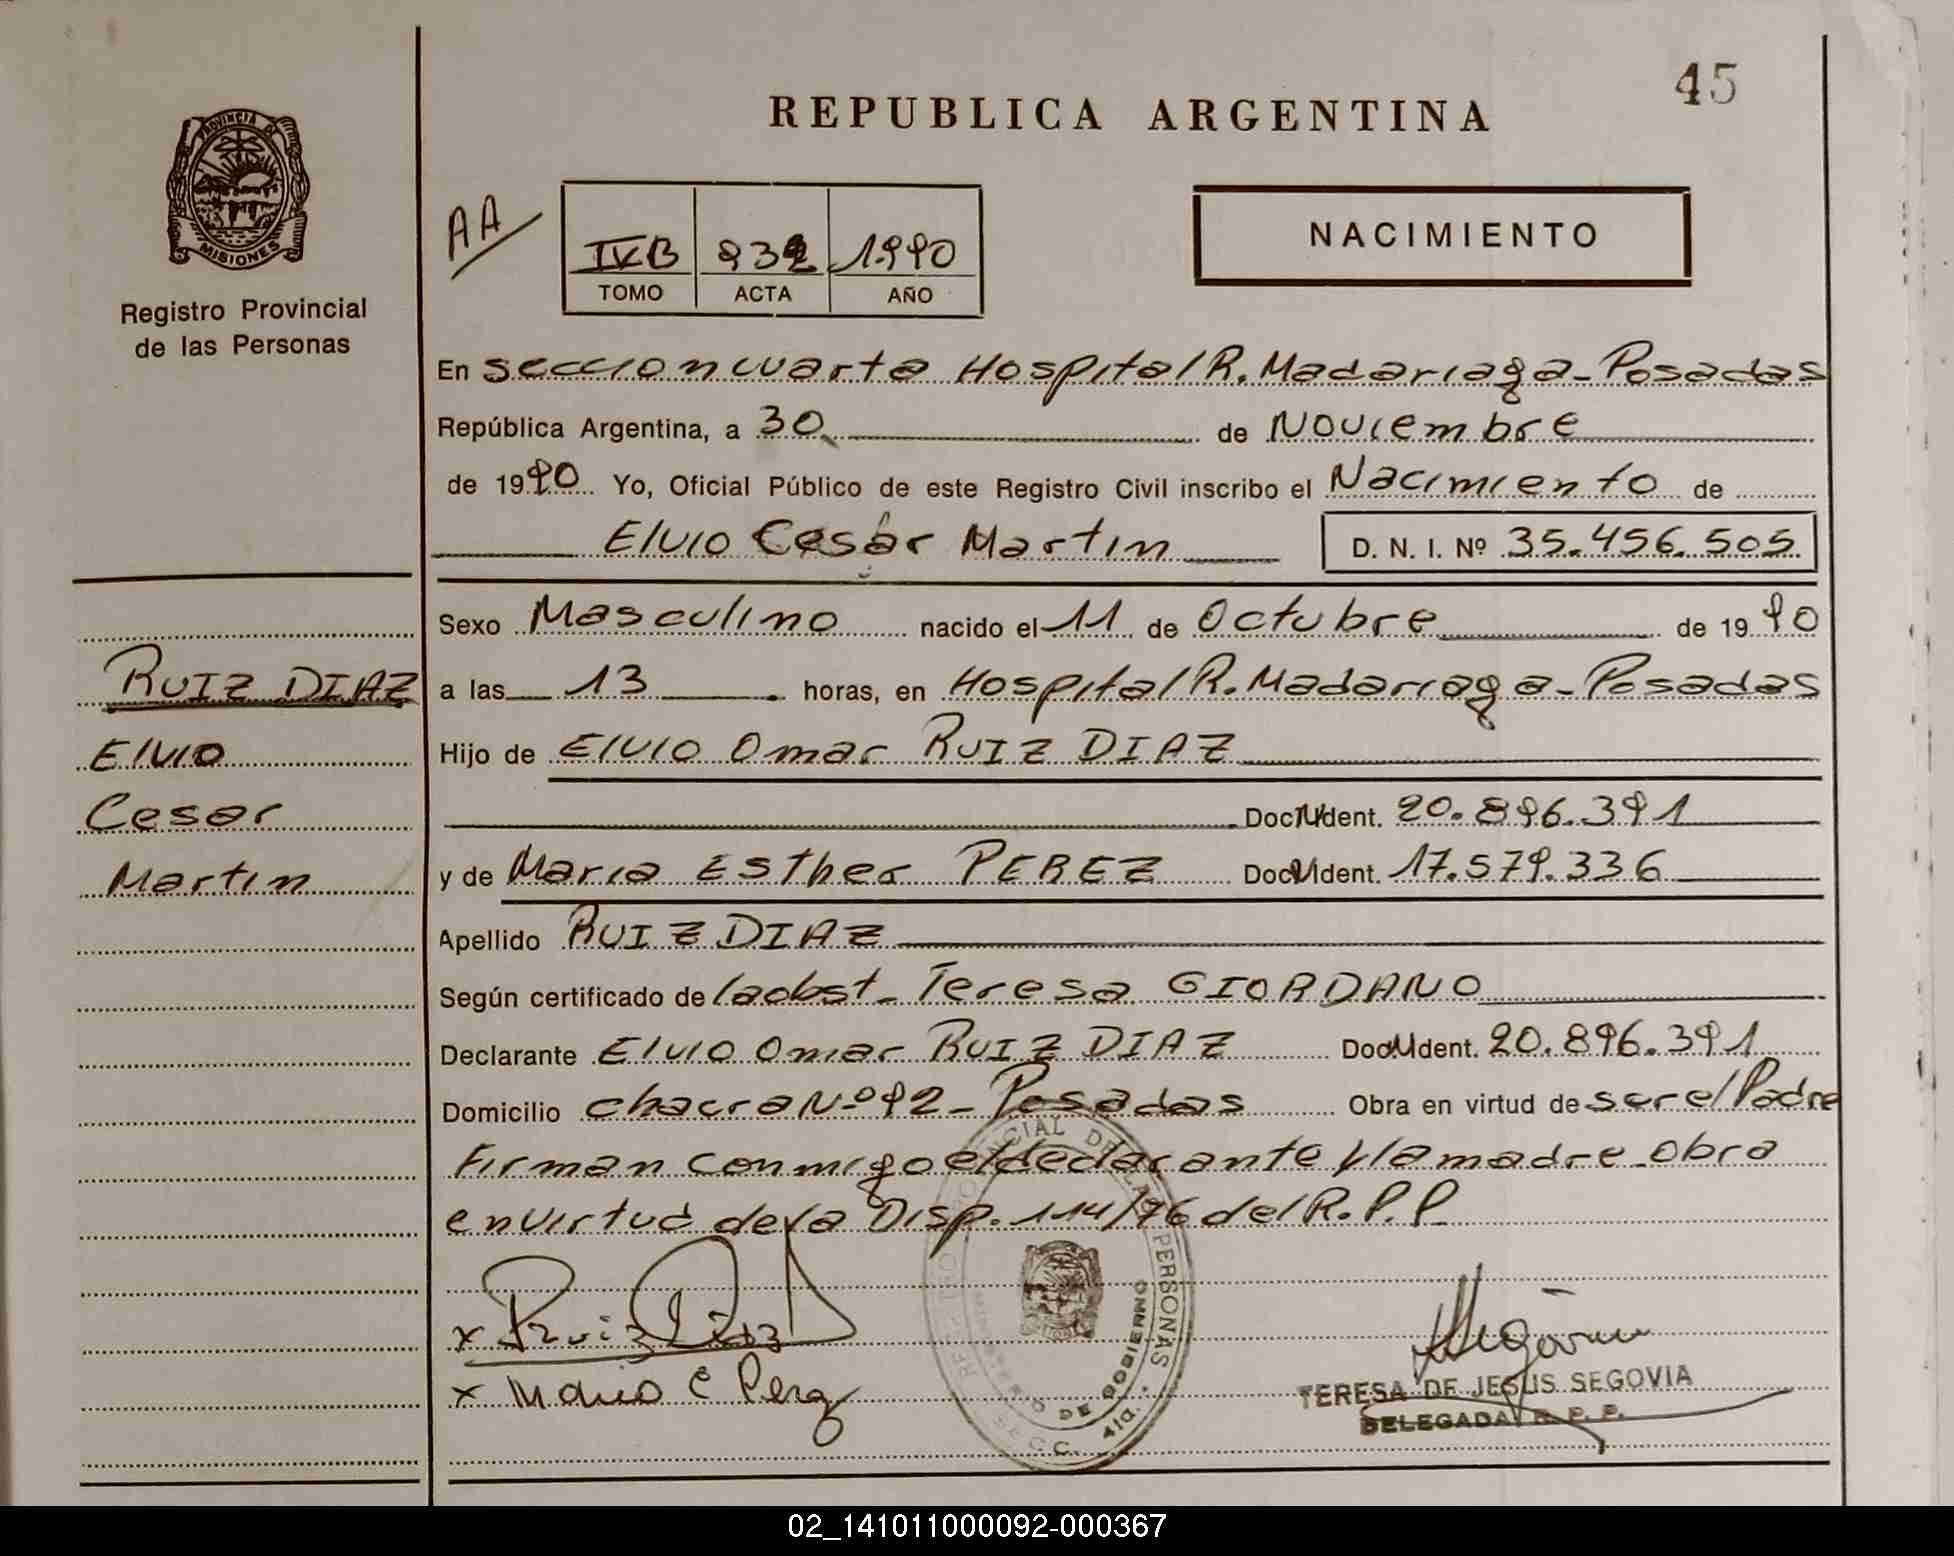 45
REPUBLICA ARGENTINA
PROVINCIA DE
MISIONES
Registro Provincial
de las Personas
AA
IVB 1990
TOMO ACTA AÑO
NACIMIENTO
En seccion cuarta Hospital R. Madariaga - Posadas
República Argentina, a 30 de Noviembre
de 1990 Yo, Oficial Público de este Registro Civil inscribo el Nacimiento de
Elvio Cesar Martin D. N. I. Nº 35.456.505
Sexo Masculino nacido el 11 de Octubre de 1990
a las 13 horas, en Hospital R. Madariaga - Posadas
Hijo de Elvio Omar RUIZ DIAZ
Doc. Ident. 20.896.391
y de Maria Esther PEREZ Doc. Ident. 17.579.336
Apellido RUIZ DIAZ
Según certificado de la obst. Teresa GIORDANO
Declarante Elvio Omar RUIZ DIAZ Doc. Ident. 20.896.391
Domicilio chacra Nº 92 - Posadas Obra en virtud de ser el Padre
Firman conmigo el declarante y la madre - obra
en virtud de la Disp. 114/76 del R.P.P.
RUIZ DIAZ
Elvio
Cesar
Martin
x Ruiz Diaz
x Maria E Perez
DE LAS PERSONAS
DE GOBIERNO
Segovia
TERESA DE JESUS SEGOVIA
DELEGADA R. P. P.
02_141011000092-000367